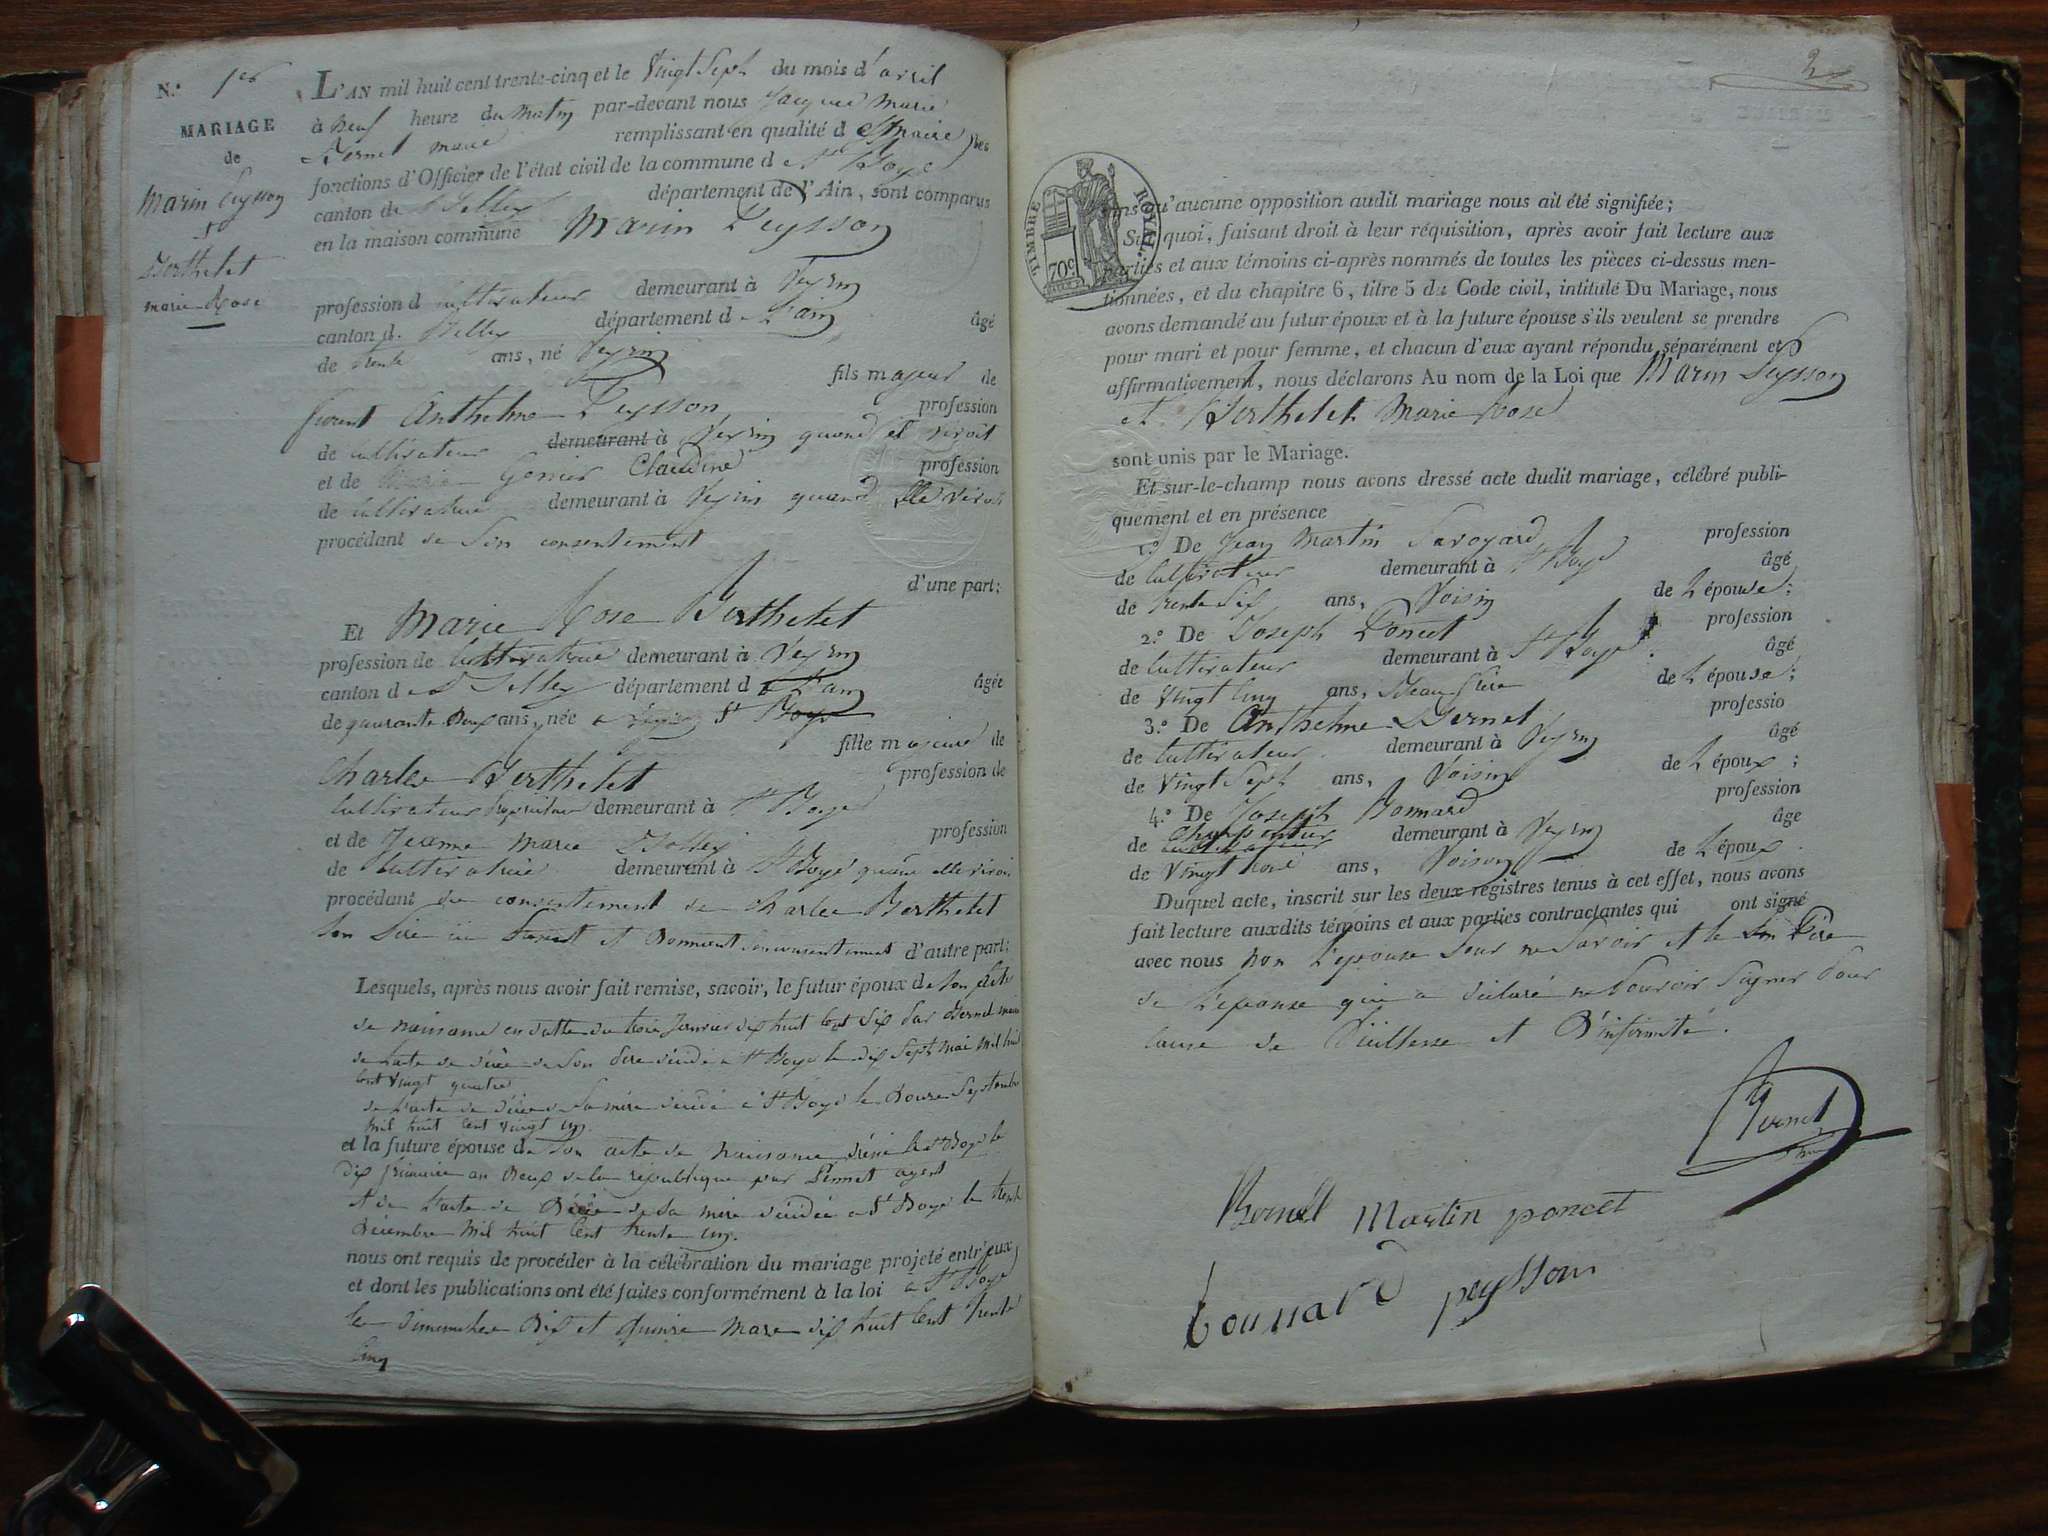 N.° 1er
MARIAGE
de
Marin Peysson
et
Berthelet
marie Rose
L'AN mil huit cent trente-cinq et le vingt Sept du mois d'avril
à neuf heure du matin par-devant nous Jacques Marie
Bernet maire remplissant en qualité de maire les
fonctions d'Officier de l'état civil de la commune de St Boys
canton de Belley département de l'Ain, sont comparus
en la maison commune Marin Peysson
profession de cultivateur demeurant à Peyrin
canton de Belley département de l'ain âgé
de trente ans, né Peyrin
fils majeur de
Anthelme Peysson profession
de cultivateur demeurant à Peyrin quand il vivoit
et de Claudine profession
de cultivatrice demeurant à Peyrin quand elle vivoit
procédant de son consentement
d'une part:
Et Marie Rose Berthelet
profession de cultivatrice demeurant à Peyrin
canton de Belley département de l'ain âgée
de quarante deux ans, née a St Boys
fille majeure de
Charles Berthelet profession de
cultivateur propriétaire demeurant à St Boys
et de Jeanne Marie profession
de cultivatrice demeurant à St Boys quand elle vivoit
procédant du consentement de Charles Berthelet
son père ici présent et donnant son consentement d'autre part:
Lesquels, après nous avoir fait remise, savoir, le futur époux de son acte
de naissance en datte du trois Janvier dix huit cent six par Bernet maire
de l'acte de décès de son père décédé à St Boys le dix sept mai mil huit
cent vingt quatre
de l'acte de décès de sa mère décédé à St Boys le douze Septembre
mil huit cent vingt un.
et la future épouse de son acte de naissance à St Boys le
dix frimaire an deux de la république par agent
et de l'acte de décès de sa mère décédée à St Boys le trente
décembre mil huit cent trente un.
nous ont requis de procéder à la célébration du mariage projeté entr'eux,
et dont les publications ont été faites conformément à la loi a St Boys
les dimanches dix et quinze mars dix huit cent trente
cinq
2
TIMBRE ROYAL
70c
sans qu'aucune opposition audit mariage nous ait été signifiée;
Sur quoi, faisant droit à leur réquisition, après avoir fait lecture aux
parties et aux témoins ci-après nommés de toutes les pièces ci-dessus men-
tionnées, et du chapitre 6, titre 5 du Code civil, intitulé Du Mariage, nous
avons demandé au futur époux et à la future épouse s'ils veulent se prendre
pour mari et pour femme, et chacun d'eux ayant répondu séparément et
affirmativement, nous déclarons Au nom de la Loi que Marin Peysson
et Berthelet Marie Rose
sont unis par le Mariage.
Et sur-le-champ nous avons dressé acte dudit mariage, célébré publi-
quement et en présence
1.° De Jean Martin Savoyard profession
de cultivateur demeurant à St Boys âgé
de trente six ans, Voisin de l'épouse;
2.° De Joseph Poncet profession
de cultivateur demeurant à St Boys âgé
de vingt cinq ans, Beau frère de l'épouse;
3.° De Anthelme Bernet professio
de cultivateur demeurant à Peyrin âgé
de vingt sept ans, Voisin de l'époux;
4.° De Joseph Bonnard profession
de charpentier demeurant à Peyrin âge
de vingt ans, Voisin de l'époux.
Duquel acte, inscrit sur les deux registres tenus à cet effet, nous avons
fait lecture auxdits témoins et aux parties contractantes qui ont signé
avec nous non l'épouse pour ne savoir et le Père
de l'épouse qui a déclaré ne pouvoir signer pour
cause de vieillesse et d'infirmité.
Bernet
Bernet Martin poncet
bonnard peysson